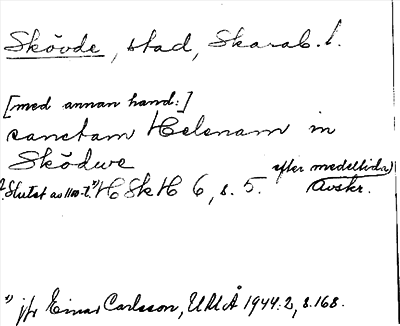 Skövde, stad, Skarab. l.
[med annan hand:]
sanctam Helenam in
Sködwe
efter medeltida)
Slutet av 1100-t.*) HSkH 6, s. 5. Avskr.
*) jfr Einar Carlsson, UUÅ 1944:2, s. 168.